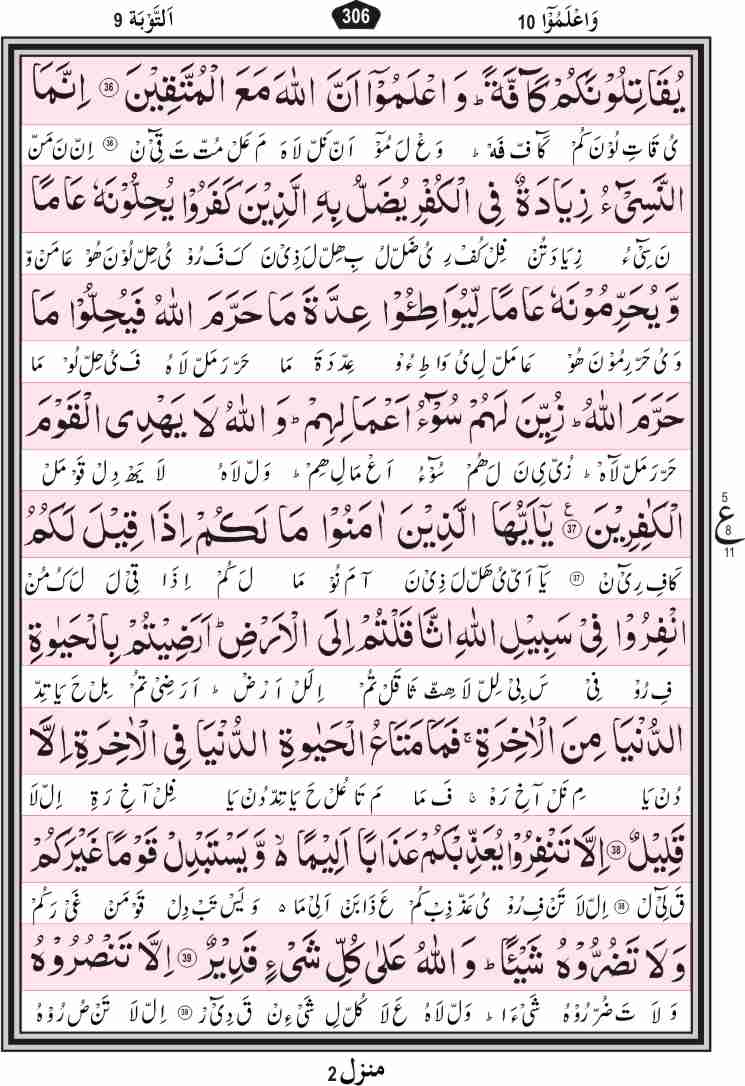 وَاعْلَمُوْٓا 10
306
اَلتَّوْبَة 9
يُقَاتِلُوْنَكُمْ كَآفَّةً ؕ وَاعْلَمُوْٓا اَنَّ اللهَ مَعَ الْمُتَّقِيْنَ 36 اِنَّمَا
يُ قَا تِ لُوْ نَ كُمْ كَآ فْ فَهْ ؕ وَعْ لَ مُوْٓ اَنْ نَلْ لَا هَ مَ عَلْ مُتْ تَ قِیْٓ نْ 36 اِنْ نَ مَنْ
النَّسِیْٓءُ زِيَادَةٌ فِی الْكُفْرِ يُضَلُّ بِهِ الَّذِيْنَ كَفَرُوْا يُحِلُّوْنَهٗ عَامًا
نَ سِیْٓ ءُ زِ يَا دَ تُنْ فِلْ كُفْ رِ يُ ضَلْ لُ بِ هِلْ لَ ذِیْ نَ كَ فَ رُوْ يُ حِلْ لُوْ نَ هُوْ عَا مَنْ وَّ
وَّيُحَرِّمُوْنَهٗ عَامًا لِّيُوَاطِئُوْا عِدَّةَ مَا حَرَّمَ اللهُ فَيُحِلُّوْا مَا
وَ يُ حَرْ رِ مُوْ نَ هُوْ عَا مَلْ لِ يُ وَا طِ ءُوْ عِدْ دَ ةَ مَا حَرْ رَ مَلْ لَا هُ فَ يُ حِلْ لُوْ مَا
حَرَّمَ اللهُ ؕ زُيِّنَ لَهُمْ سُوْٓءُ اَعْمَالِهِمْ ؕ وَاللهُ لَا يَهْدِی الْقَوْمَ
حَرْ رَ مَلْ لَاهْ ؕ زُیْ یِ نَ لَ هُمْ سُوْٓ ءُ اَعْ مَا لِ هِمْ ؕ وَلْ لَا هُ لَا يَهْ دِ لْ قَوْ مَلْ
الْكٰفِرِيْنَ 37 يٰٓاَيُّهَا الَّذِيْنَ اٰمَنُوْا مَا لَكُمْ اِذَا قِيْلَ لَكُمُ
كَا فِ رِیْٓ نْ 37 يَآ اَیْ یُ هَلْ لَ ذِیْ نَ آ مَ نُوْ مَا لَ كُمْ اِ ذَا قِیْ لَ لَ كُ مُنْ
انْفِرُوْا فِیْ سَبِيْلِ اللهِ اثَّاقَلْتُمْ اِلَى الْاَرْضِ ؕ اَرَضِيْتُمْ بِالْحَيٰوةِ
فِ رُوْ فِیْ سَ بِیْ لِلْ لَا هِثْ ثَا قَلْ تُمْ اِ لَلْ اَ رْ ضْ ؕ اَ رَ ضِیْ تُمْ بِلْ حَ يَا تِدْ
الدُّنْيَا مِنَ الْاٰخِرَةِ ۚ فَمَا مَتَاعُ الْحَيٰوةِ الدُّنْيَا فِی الْاٰخِرَةِ اِلَّا
دُنْ يَا مِ نَلْ آ خِ رَهْ ۚ فَ مَا مَ تَا عُلْ حَ يَا تِدْ دُنْ يَا فِلْ آ خِ رَ ةِ اِلْ لَا
قَلِيْلٌ 38 اِلَّا تَنْفِرُوْا يُعَذِّبْكُمْ عَذَابًا اَلِيْمًا ۙ وَّيَسْتَبْدِلْ قَوْمًا غَيْرَكُمْ
قَ لِیْٓ لْ 38 اِلْ لَا تَنْ فِ رُوْ يُ عَذْ ذِبْ كُمْ عَ ذَا بَنْ اَ لِیْ مَا ۙ وَ يَسْ تَبْ دِلْ قَوْ مَنْ غَیْ رَ كُمْ
وَلَا تَضُرُّوْهُ شَيْئًا ؕ وَاللهُ عَلٰی كُلِّ شَیْءٍ قَدِيْرٌ 39 اِلَّا تَنْصُرُوْهُ
وَ لَا تَ ضُرْ رُوْ هُ شَیْ ءَا ؕ وَلْ لَا هُ عَ لَا كُلْ لِ شَیْ ءِنْ قَ دِیْٓ رْ 39 اِلْ لَا تَنْ صُ رُوْ هُ
5
ع
8
11
منزل 2